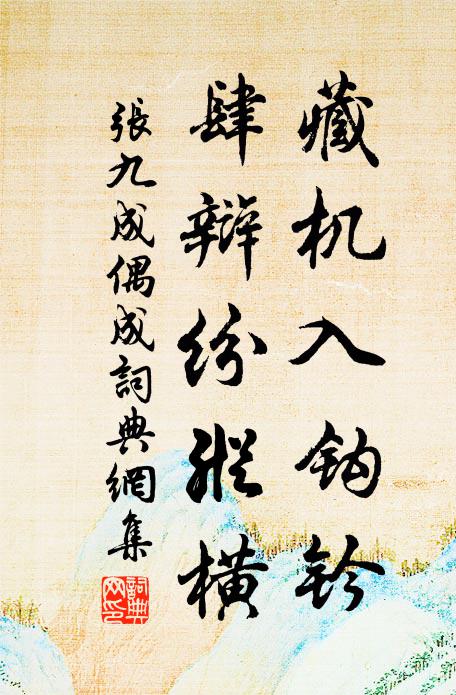 藏机入钩钤
肆辩纷縱横
張九成偶成詞典網集
詞典